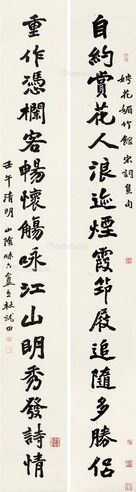 娉花媚竹館宋詞集句
自約賞花人浪迹煙霞笻屐追隨多勝侶
重作憑欄客暢懷觴咏江山明秀發詩情
壬午清明山陰味六盦主杜就田